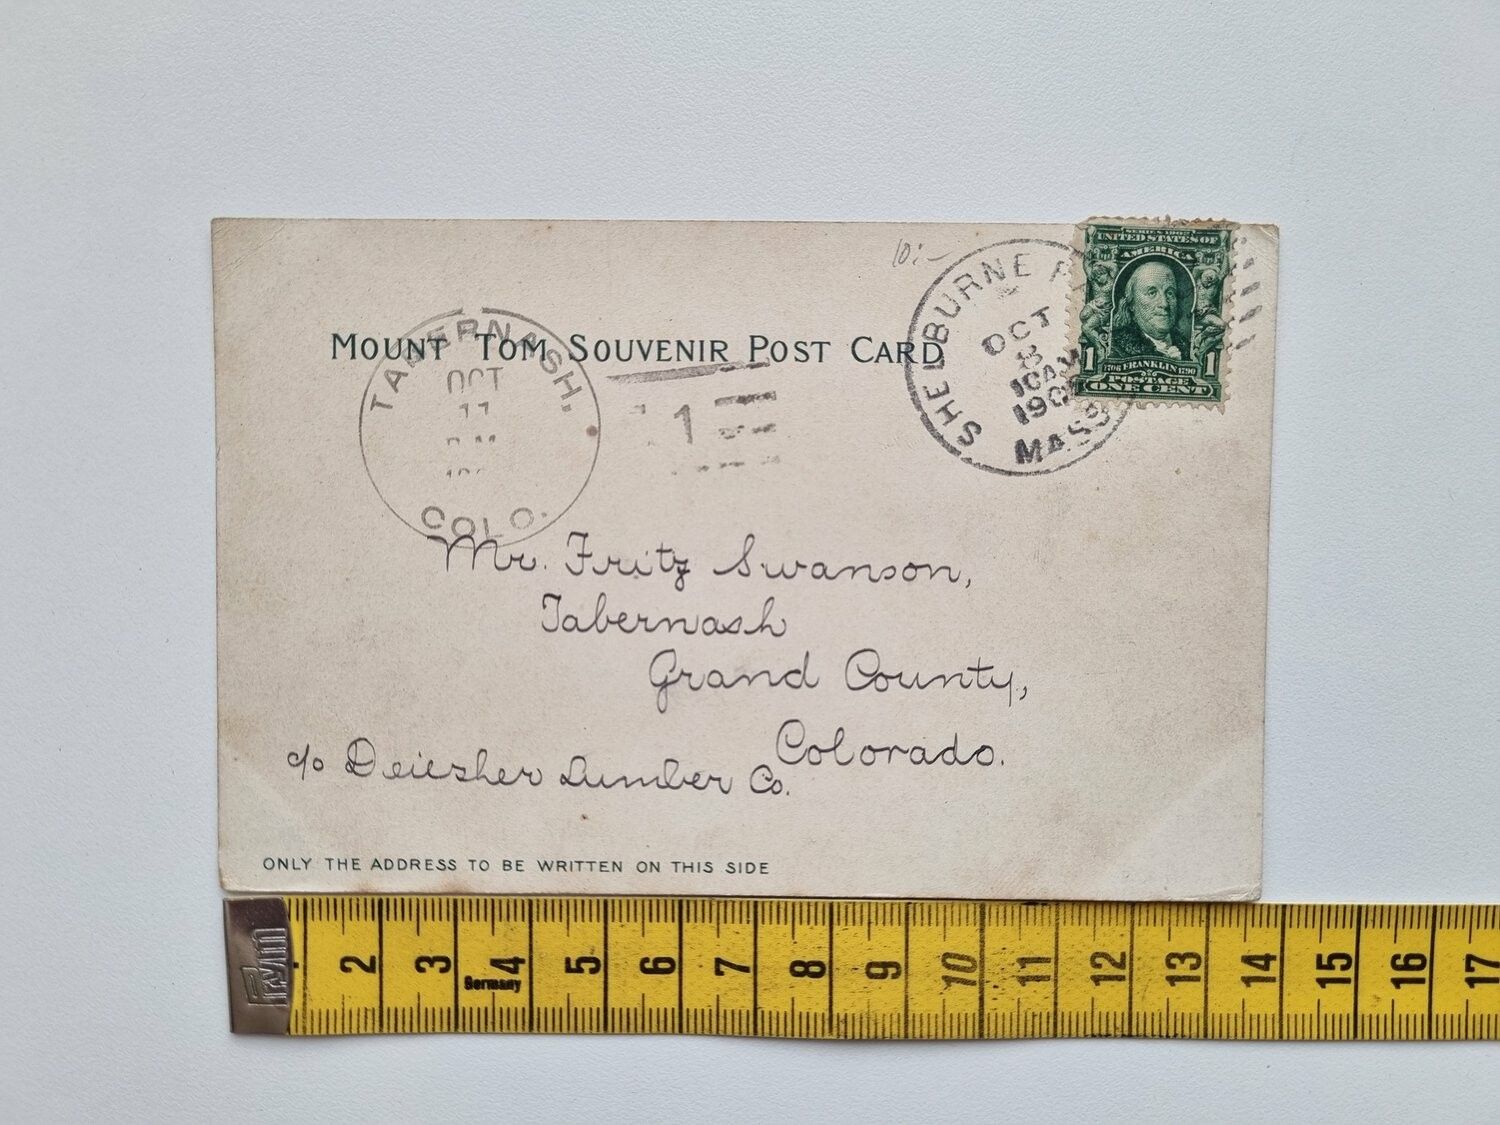 10:-
MOUNT TOM SOUVENIR POST CARD
TABERNASH.
OCT
11
COLO.
1
SHELBURNE
OCT
8
MASS
SERIES 1902
UNITED STATES OF
AMERICA
1 1
1706 FRANKLIN 1790
POSTAGE
ONE CENT
Mr. Fritz Swanson,
Tabernash
Grand County,
Colorado.
c/o Deiesher Lumber Co.
ONLY THE ADDRESS TO BE WRITTEN ON THIS SIDE
2 3 4 5 6 7 8 9 10 11 12 13 14 15 16 17
Germany